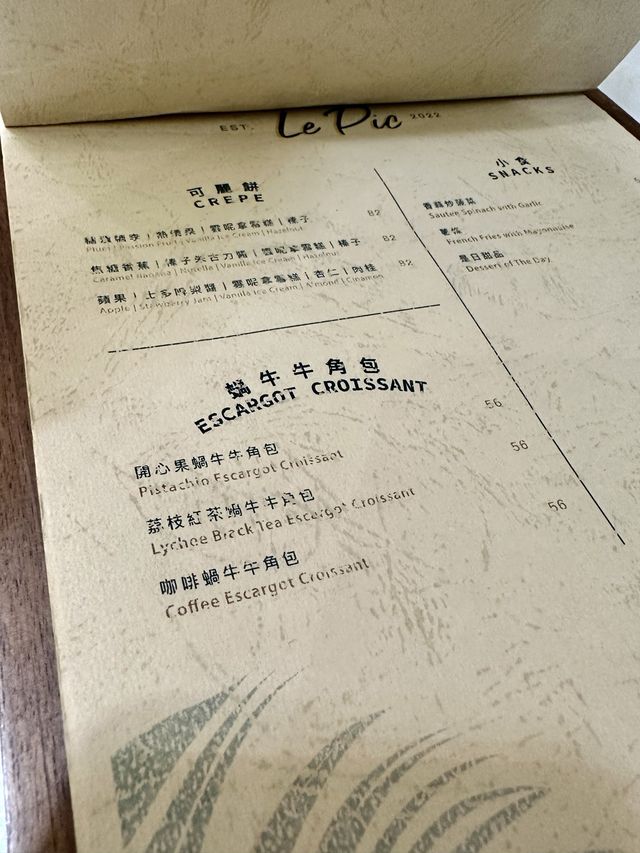 EST. Le Pic 2022
可麗餅
CREPE
糖漬蜜李 | 熱情果 | 雲呢拿雪糕 | 榛子 82
Pluet | Passion Fruit | Vanilla Ice Cream | Hazelnut
焦糖香蕉 | 榛子朱古力醬 | 雲呢拿雪糕 | 榛子 82
Caramel Banana | Nutella | Vanilla Ice Cream | Hazelnut
蘋果 | 士多啤梨醬 | 雲呢拿雪糕 | 杏仁 | 肉桂 82
Apple | Strawberry Jam | Vanilla Ice Cream | Almond | Cinamon
小食
SNACKS
香蒜炒菠菜
Sautee Spinach with Garlic
薯條
French Fries with Mayonnaise
是日甜品
Dessert of The Day
蝸牛牛角包
ESCARGOT CROISSANT
開心果蝸牛牛角包 56
Pistachio Escargot Croissant
荔枝紅茶蝸牛牛角包 56
Lychee Black Tea Escargot Croissant
咖啡蝸牛牛角包 56
Coffee Escargot Croissant